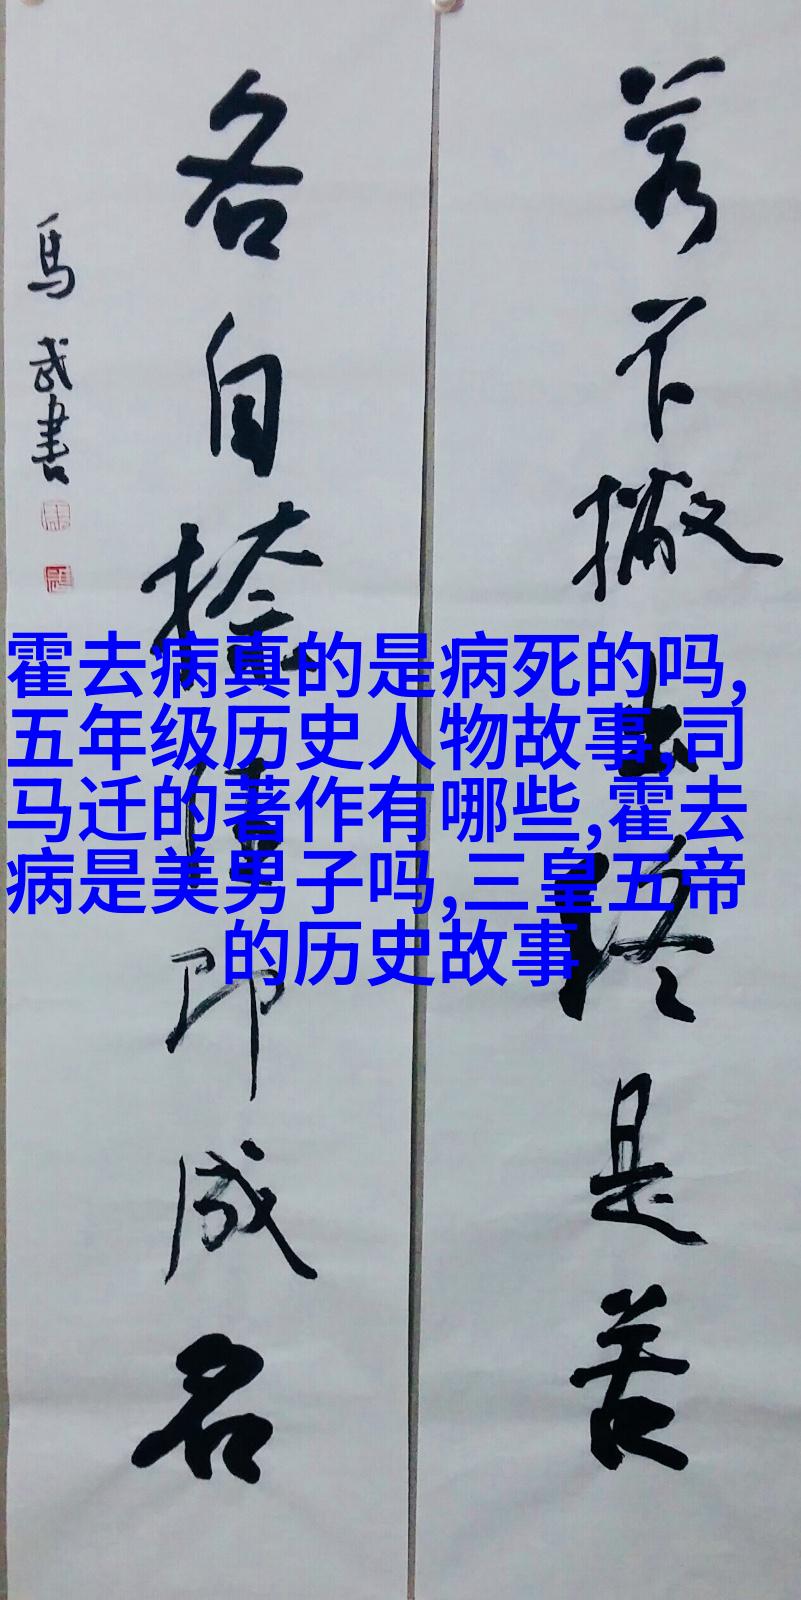 若不撇出终是苦
各自捺即成名
馬武書
霍去病真的是病死的吗,
五年级历史人物故事,司
马迁的著作有哪些,霍去
病是美男子吗,三皇五帝
的历史故事